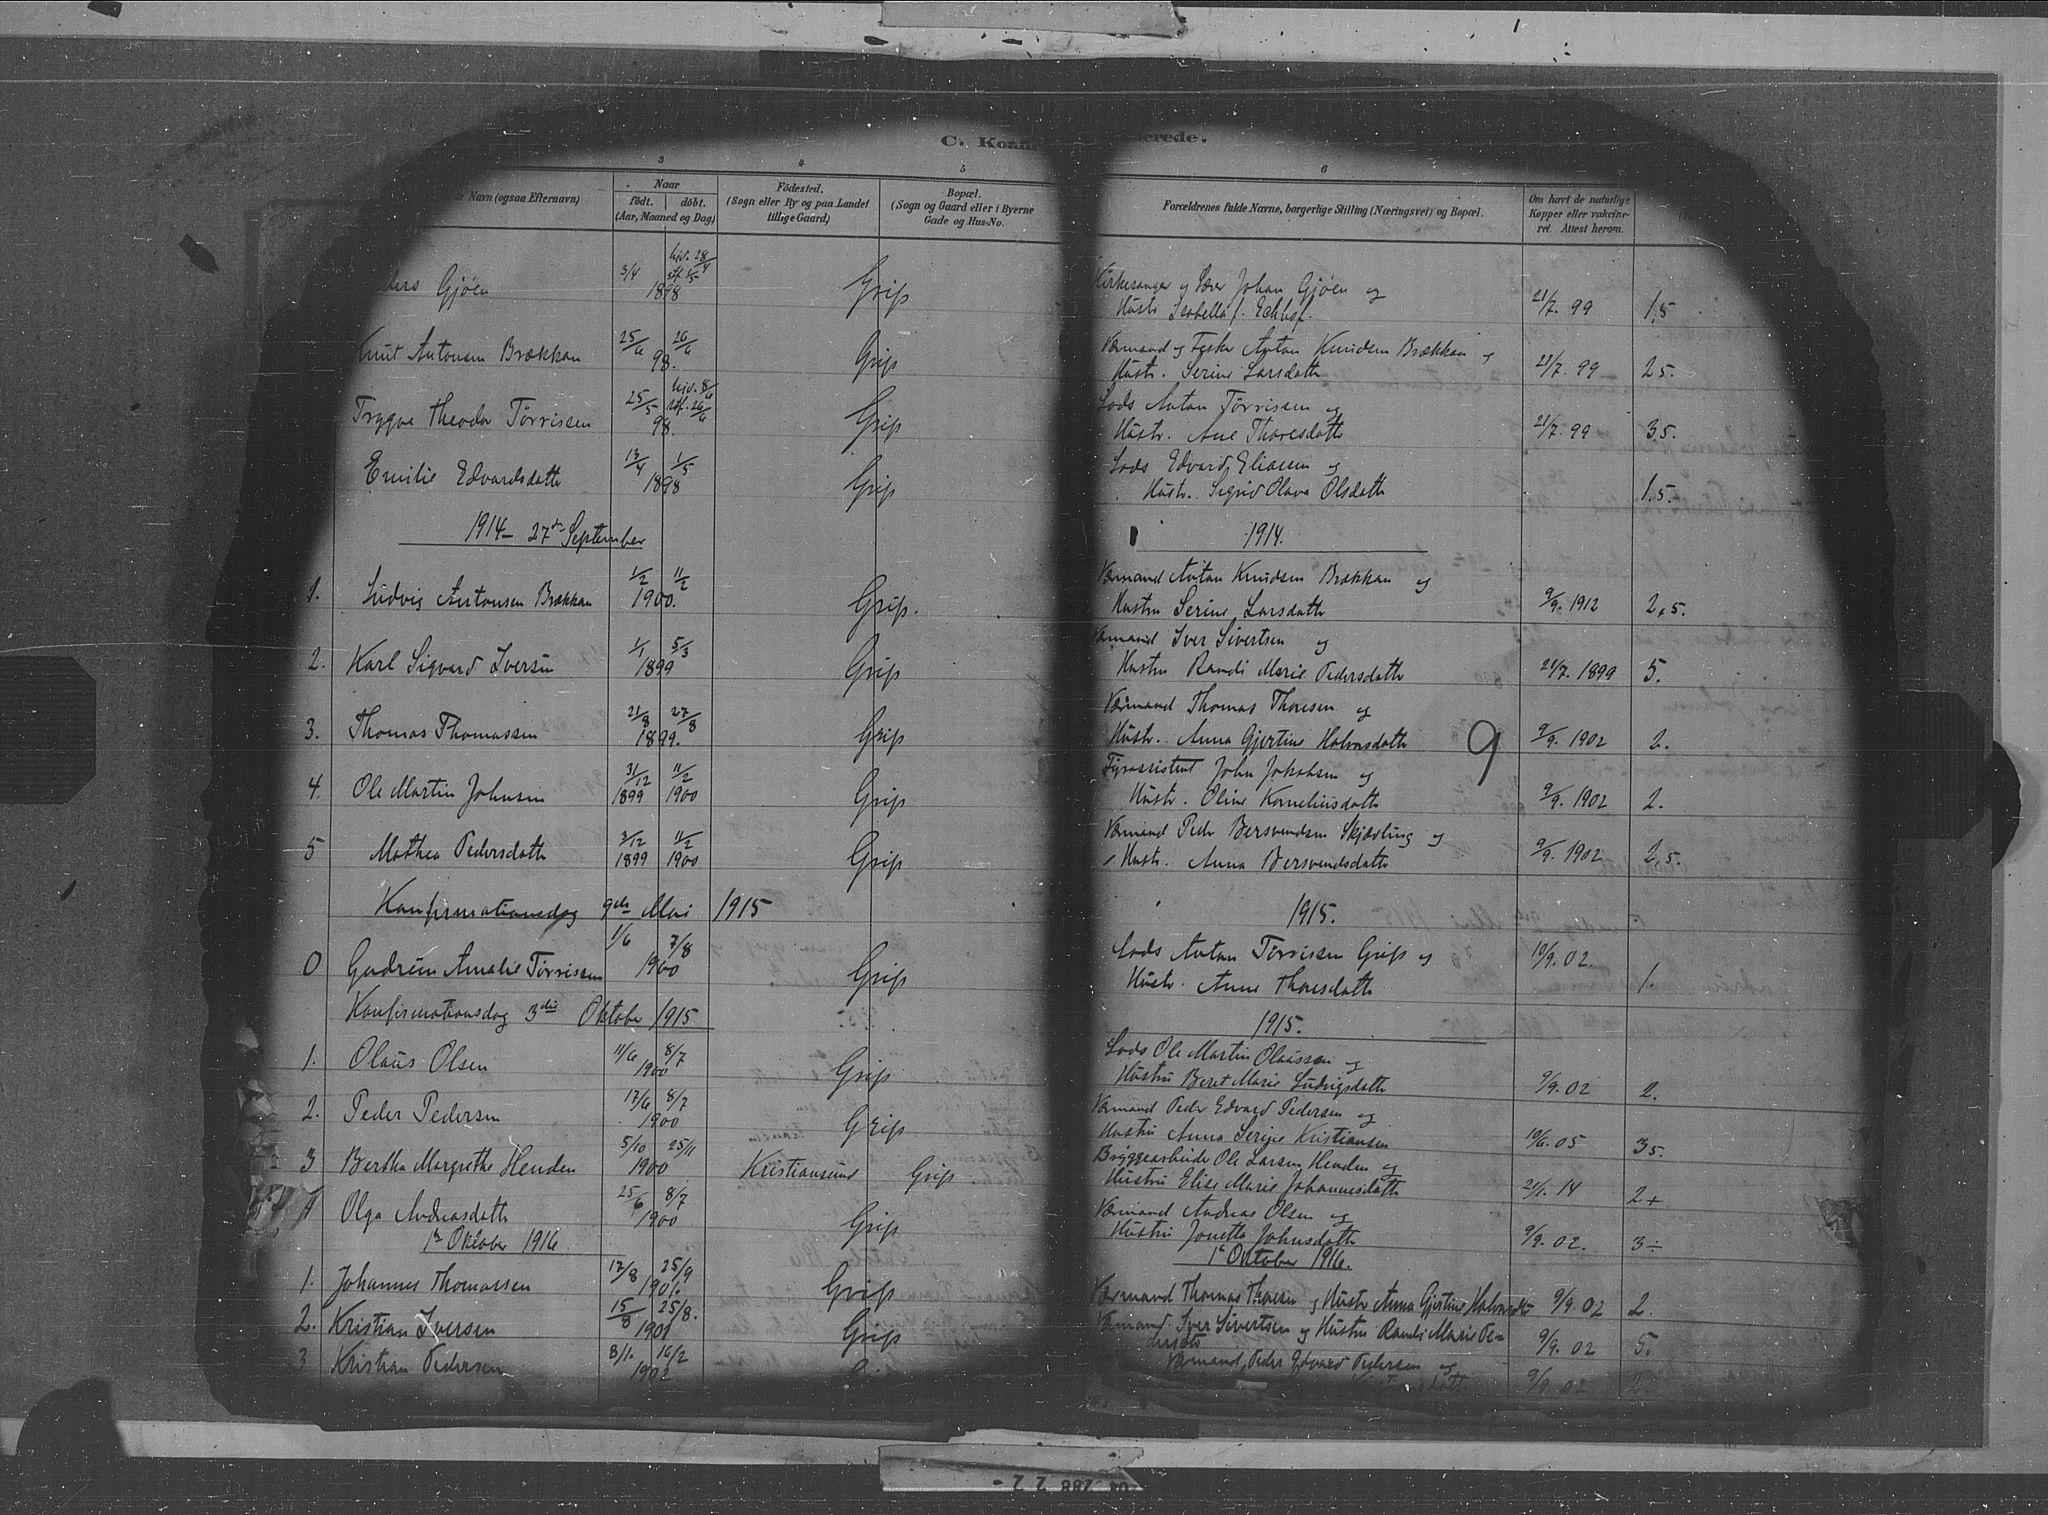 C. Kon erede.
3 4 5 6
Navn (ogsaa Efternavn)
Naar
födt. döbt.
(Aar, Maaned og Dag)
Födested.
(Sogn eller By og paa Landet
tillige Gaard)
Bopæl.
(Sogn og Gaard eller i Byerne
Gade og Hus-No.
Forældrenes fulde Navne, borgerlige Stilling (Næringsvei) og Bopæl.
Om havt de naturlige
Kopper eller vakcine-
ret. Attest herom.
Gjöen 3/4 hjv. 28/4 1898 Grip
Kirkesanger og Lærer Johan Gjöen og
Hustr Isabella f. 21/7. 99 1,5
Knut Antonsen Brækkan 25/6 26/6 98. Grip
Værmand og Fisker Anton Knudsen Brækkan og
Hustr. Serine Larsdatter 21/7. 99 2 5.
Trygve Theodor Törrissen 25/5 hjv. 8/6 stf. 26/6 98. Grip
Lods Anton Törrissen og
Hustr. Ane Thoresdattr 21/7 99 3,5.
Emilie Edvardsdattr 13/4 1/5 1898 Grip
Lods Edvard Eliassen og
Hustr. Sigrid Olava Olsdattr 1.5.
1914 – 27de September
1914.
1. Ludvig Antonsen Brækkan 1/2 11/2 1900. Grip.
Værmand Anton Knudsen Brækkan og
Hustru Serine Larsdattr 9/9. 1912 2,5.
2. Karl Sigvard Iversen 1/1 5/3 1899 Grip
Værmand Iver Sivertsen og
Hustru Randi Marie Pedersdattr 21/7. 1899 5.
3. Thomas Thomassen 21/8 27/8 1899. Grip
Værmand Thomas Thoresen og
Hustr. Anna Gjertine Halvorsdattr 9 9/9. 1902 2.
4. Ole Martin Johnsen 31/12 1899 11/2 1900 Grip
Fyrassistent John Jakobsen og
Hustr. Oline Korneliusdattr 9/9. 1902 2.
5 Mathea Pedersdattr 3/12 1899 11/2 1900 Grip
Værmand Peder Bersvendsen Skjærling og
Hustr. Anna Bersvendsdattr 9/9. 1902 2,5.
Konfirmationsdag 9de Mai 1915
1915.
0 Gudrun Amalie Törrissen 1/6 7/8 1900 Grip
Lods Anton Törrissen Grip og 10/9. 02.
Hustr. Anne Thoresdattr 1.
Konfirmationsdag 3die Oktober 1915
1915.
1. Olaus Olsen 11/6 8/7 1900 Grip
Lods Ole Martin Olaussen og
Hustru Beret Marie Ludvigsdattr 9/9. 02 2.
2. Peder Pedersen 17/6 8/7 1900 Grip
Værmand Peder Edvard Pedersen og
Hustru Anna Serine Kristiansen 10/6. 05 3 5.
3 Bertha Margrethe Henden 5/10 25/11 1900 Kristiansund Grip
Bryggearbeider Ole Larsen Henden og
Hustru Elise Marie Johannesdattr 21/1. 14 2+
4 Olga Andreasdattr 25/6 8/7 1900 Grip
Værmand Andreas Olsen og
Hustru Jonetta Johnsdattr 9/9. 02. 3÷
1ste Oktober 1916
1ste Oktober 1916.
1. Johannes Thomassen 17/8 25/9 1901. Grip
Værmand Thomas Thoresen og Hustr Anna Gjertine Halvorsdtr 9/9. 02 2.
2. Kristian Iversen 15/8 25/8. 1901 Grip
Værmand. Iver Sivertsen og Hustru Randi Marie Pe-
dersdtr 9/9. 02 5.
3 Kristian Pedersen 8/1. 16/2 1902
Værmand Peder Edvard Pedersen og
9/9 02 2.